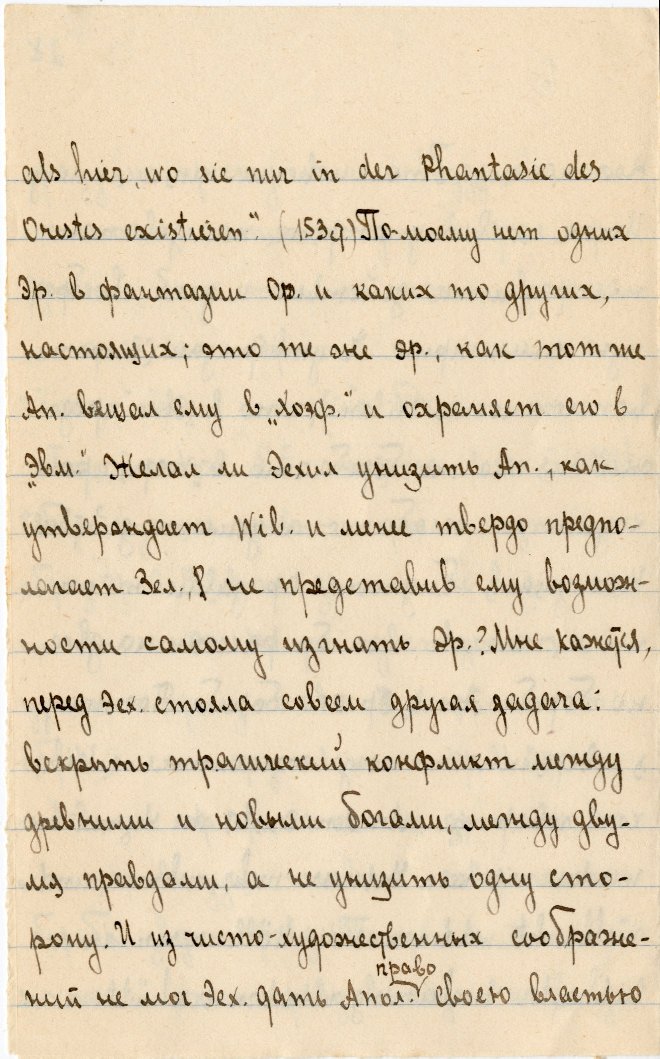 als hier, wo sie nur in der Phantasie des
Orestes existieren". (153q) По-моему нет одних
Эр. в фантазии Ор. и каких то других,
настоящих; это те же Эр., как тот же
Ап. вещал ему в „Хоэф." и охраняет его в
„Эвм." Желал ли Эсхил унизить Ап., как
утверждает Wil. и менее твердо предпо-
лагает Зел., не предоставив ему возмож-
ности самому изгнать Эр.? Мне кажется,
перед Эсх. стояла совсем другая задача:
вскрыть трагический конфликт между
древними и новыми богами, между дву-
мя правдами, а не унизить одну сто-
рону. И из чисто-художественных соображе-
ний не мог Эсх. дать Апол. право своею властью